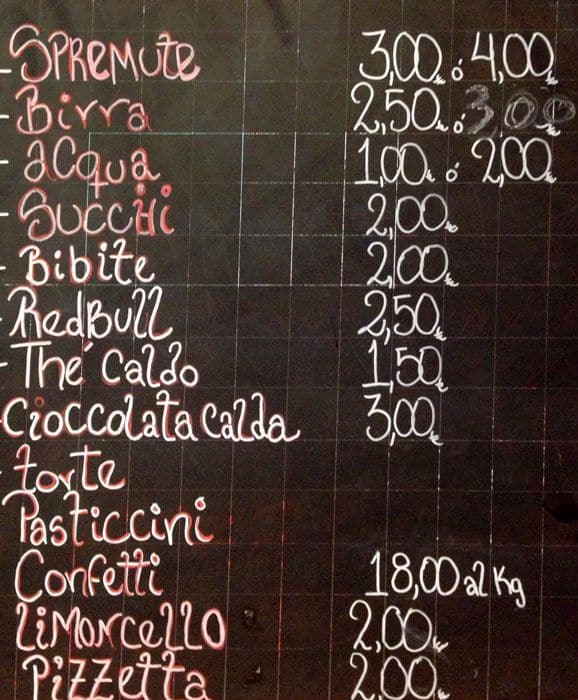 - Spremute 3,00 ó 4,00
- Birra 2,50 ó 3,00
- acqua 1,00 ó 2,00
- Succhi 2,00
- Bibite 2,00
- RedBull 2,50
- Thé Caldo 1,50
- Cioccolata Calda 3,00
- torte
Pasticcini
Confetti 18,00 al Kg
Limoncello 2,00
Pizzetta 2,00